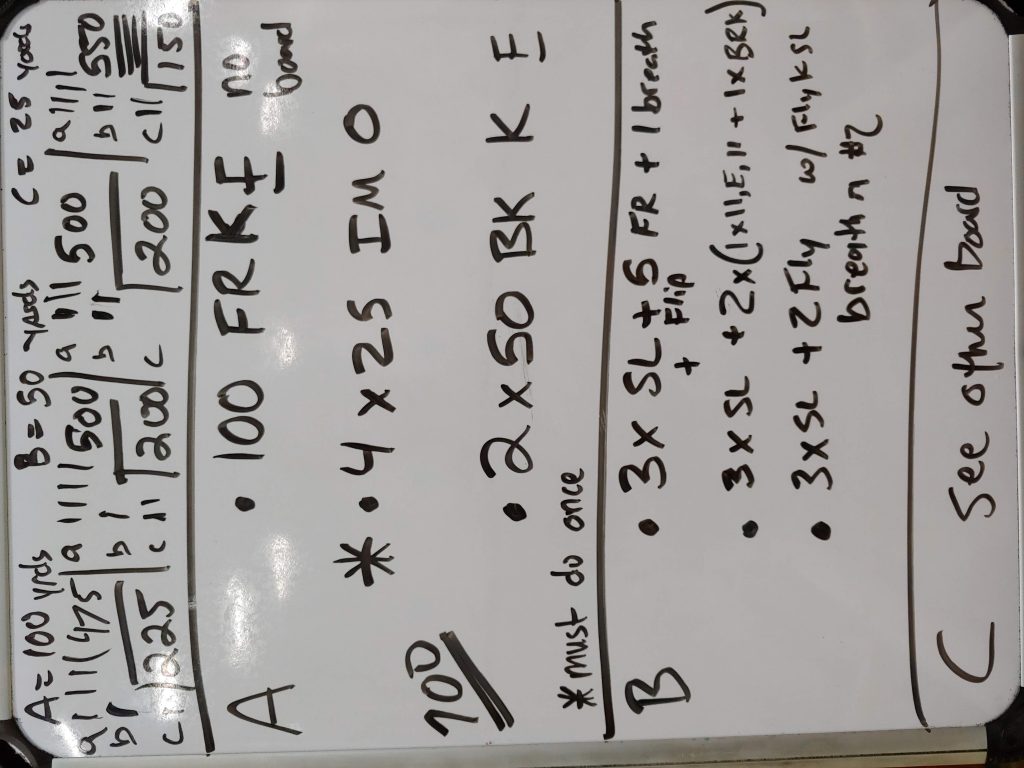 A = 100 yrds B = 50 yards C = 25 yards
a | | | | | 475 a | | | | 500 a | | | 500 a | | | | 550
b | b | b | | b | | |
c | 225 c | | 200 c 200 c | | 150
A • 100 FR K F no board
* • 4 x 25 IM O
100
• 2 x 50 BK K F
* must do once
B • 3 x SL + 5 FR + 1 breath
+ Flip
• 3 x SL + 2 x (1 x 11, E, 11 + 1 x BRK)
• 3 x SL + 2 Fly w/ Fly K SL
breath n #2
C See other board